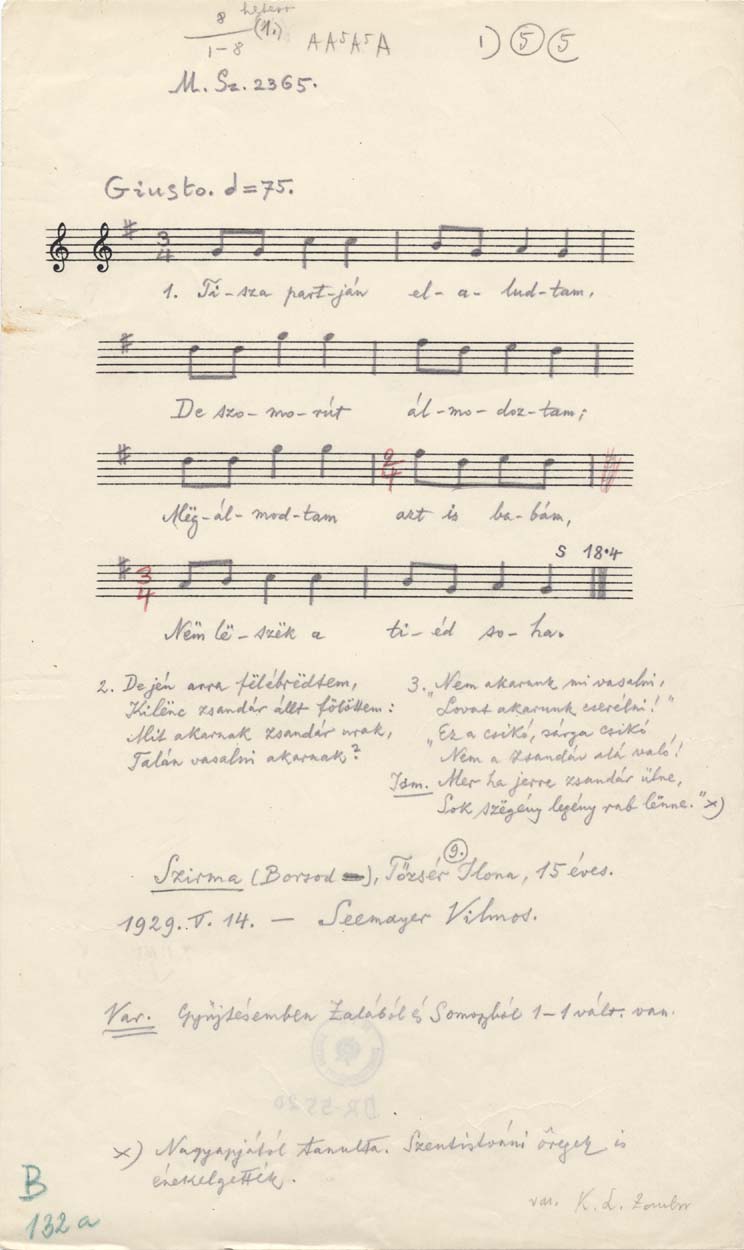 8 heterr
1-8 (1.) AA⁵A⁵A 1) ⑤ 5
M. Sz. 2365.
Giusto. d=75.
3
4
1. Ti-sza part-ján el-a-lud-tam,
De szo-mo-rút ál-mo-doz-tam;
2
4
Mëg-ál-mod-tam azt is ba-bám,
S 18·4
3
4
Nëm lë-szëk a ti-éd so-ha.
2. De jén arra fëlébrëdtem,
Kilënc zsandár állt fölöttem:
Mit akarnak zsandár urak,
Talán vasalni akarnak?
3. „Nem akarunk mi vasalni,
Lovat akarunk cserélni!"
„Ez a csikó, sárga csikó
Nem a zsandár alá való!
Ism. Mer ha jerre zsandár ülne,
Sok szëgény legény rab lënne." x)
9.
Szirma (Borsod), Tőzsér Ilona, 15 éves.
1929. V. 14. — Seemayer Vilmos.
Var. Gyűjtésemben Zalából és Somogyból 1-1 vált. van.
DR-5520
x) Nagyapjától tanulta. Szentistváni öregek is
énekelgették.
B
132a
var. K. L. Zombor